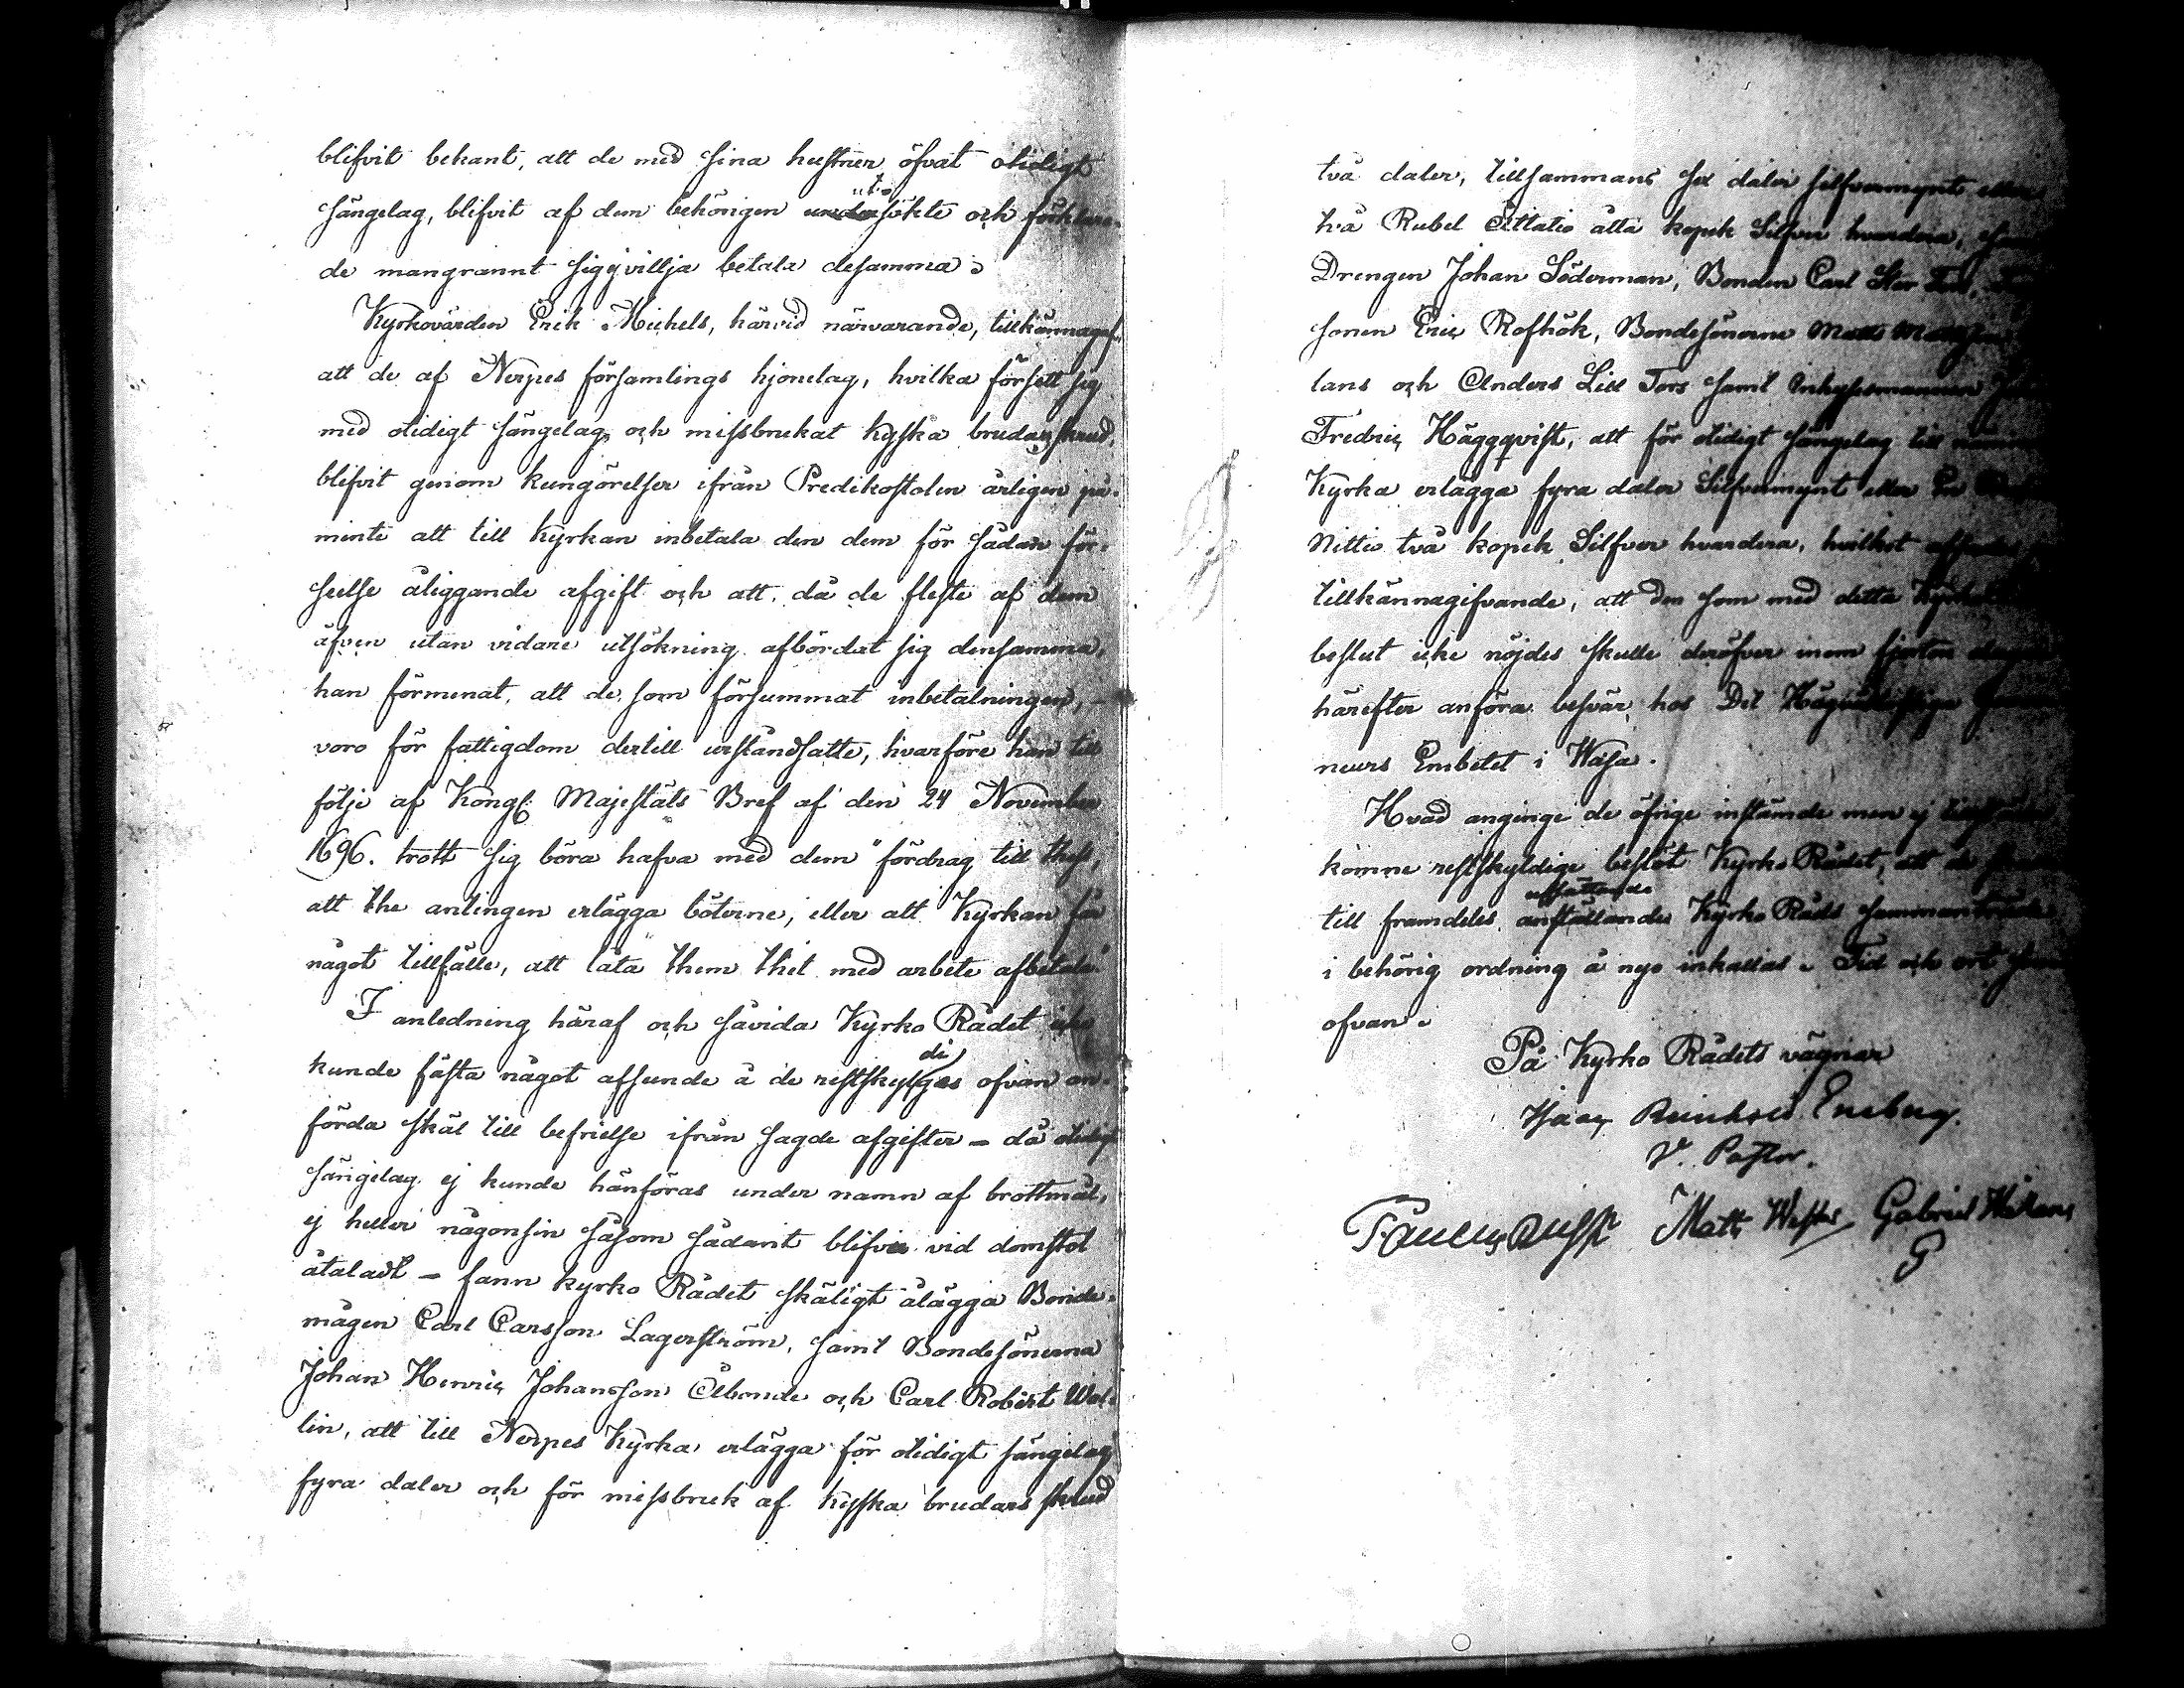 blifvit bekant, att de med sina hustrur öfvat otidigt
sängelag, blifvit af dem behörigen utsökte och förklara-
de mangrannt sig ej villja betala desamma.
Kyrkovärden Erik Michels, härvid närvarande, tillkännagaf
att de af Nerpes församlings hjonelag, hvilka försett sig
med otidigt sängelag och missbrukat kyska brudars skrud,
blifvit genom kungörelser ifrån Predikostolen årligen på-
minte att till Kyrkan inbetala den dem för sådan för-
seelse åliggande afgift och att, då de fleste af dem
äfven utan vidare utsökning afbördat sig densamma,
han förmenat, att de, som försummat inbetalningen, -
voro för fattigdom dertill urståndsatte, hvarföre han till
följe af Kongl. Majestäts Bref af den 24 November
1696. trott sig böra hafva med dem "fördrag till thess,
att the antingen erlägga böterne, eller att Kyrkan får
något tillfälle, att låta them thet med arbete afbetala"
I anledning häraf och såvida Kyrko Rådet icke
kunde fästa något afseende å de restskyldiges ofvan an-
förda skäl till befrielse ifrån sagde afgifter - då otidigt
sängelag ej kunde hänföras under namn af brottmål,
ej heller någonsin såsom sådant blifvit vid domstol
åtaladt - fann kyrko Rådet skäligt ålägga Bonde-
mågen Carl Carsson Lagerström, samt Bondesönerna
Johan Henric Johansson Ålbonde och Carl Robert Wal-
lin, att till Nerpes Kyrka erlägga för otidigt sängelag
fyra daler och för missbruk af kyska brudars skrud
två daler, tillsammans sex daler silfvermynt eller
två Rubel Åttatio åtta kopek Silfver hvardera, samt
Drengen Johan Söderman, Bonden Carl Stor
sonen Eric Rofhök, Bondesönerna Matts
lans och Anders Lill Tors samt Inhysesmannen
Fredric Häggqvist, att för otidigt sängelag till
Kyrka erlägga fyra daler Silfvermynt eller En
Nittio två kopek Silfver hvardera, hvilket
tillkännagifvande, att den som med detta Kyrko
beslut icke nöjdes skulle deröfver inom fjorton dagar
härefter anföra besvär hos Det Högvälb
neurs Embetet i Wasa.
Hvad anginge de öfrige instämde men ej
komne restskyldige beslöt Kyrko Rådet, att de
till framdeles anställande Kyrko Råds sammanträde
i behörig ordning å nyo inkallas. Tid och ort som
ofvan.
På Kyrko Rådets vägnar
Isaac Reinhold Eneberg.
V. Pastor.
Matts Gabriel